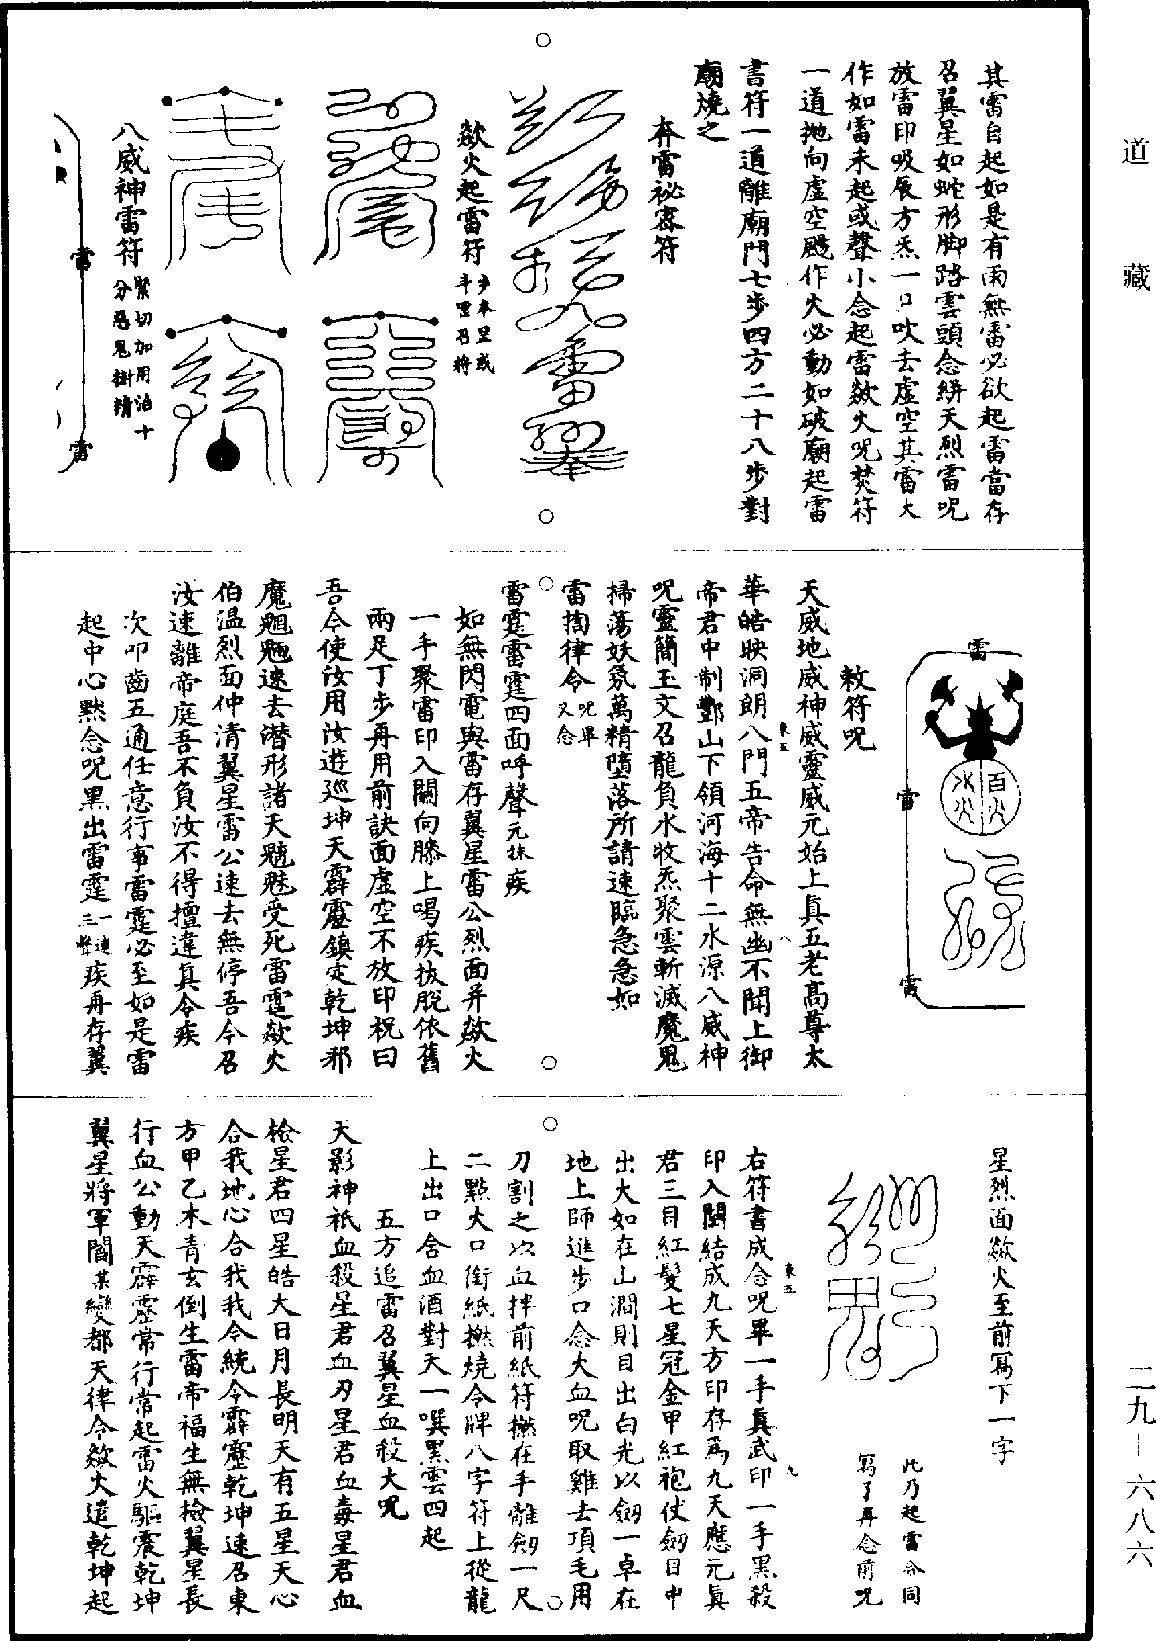 道藏
其雷自起如是有雨無雷必欲起雷當存
召翼星如蛇形腳踏雲頭念緋天烈雷呪
放雷印吸辰方炁一口吹去虛空其雷大
作如雷未起或聲小念起雷欻火呪焚符
一道拋向虛空颺作火必動如破廟起雷
書符一道離廟門七步四方二十八步對
廟燒之
奔雷祕密符
欻火起雷符
八威神雷符緊切加用治十
分惡鬼樹精
雷
雷
雷
雷
雷
百火
水火
敕符呪
天威地威神威靈威元始上真五老高尊太
華皓映洞朗八門五帝告命無幽不聞上御
帝君中制酆山下領河海十二水源八威神
呪靈簡玉文召龍負水收炁聚雲斬滅魔鬼
掃蕩妖氛萬精墮落所請速臨急急如
雷揩律令呪畢
又念
雷霆雷霆四面呼聲元抹疾
如無閃電與雷存翼星雷公烈面并欻火
一手聚雷印入關向膝上喝疾拔脫依舊
兩足丁步再用前訣面虛空不放印祝曰
吾今使汝用汝遊巡坤天霹靂鎮定乾坤邪
魔魍魎速去潛形諸天魑魅受死雷霆欻火
伯温烈面仲清翼星雷公速去無停吾今召
汝速離帝庭吾不負汝不得擅違真令疾
次叩齒五通任意行事雷霆必至如是雷
起中心黙念呪黑出雷霆一連
三聲疾再存翼
星烈面欻火至前寫下一字
此乃起雷合同
寫了再念前呪
右符書成念呪畢一手真武印一手黑殺
印入關結成九天方印存爲九天應元真
君三目紅髮七星冠金甲紅袍仗劒目中
出火如在山澗則目出白光以劒一卓在
地上師進步口念火血呪取雞去頂毛用
刀割之以血拌前紙符撚在手離劒一尺
二點火口銜紙撚燒令牌八字符上從龍
上出口含血酒對天一噀黑雲四起
五方追雷召翼星血殺大呪
天影神祇血殺星君血刃星君血毒星君血
檢星君四星皓大日月長明天有五星天心
合我地心合我我令統令霹靂乾坤速召東
方甲乙木青玄倒生雷帝福生無檢翼星長
行血公動天霹靂常行常起雷火驅震乾坤
翼星將軍閻某變都天律令欻火遣乾坤起
二九–六八六